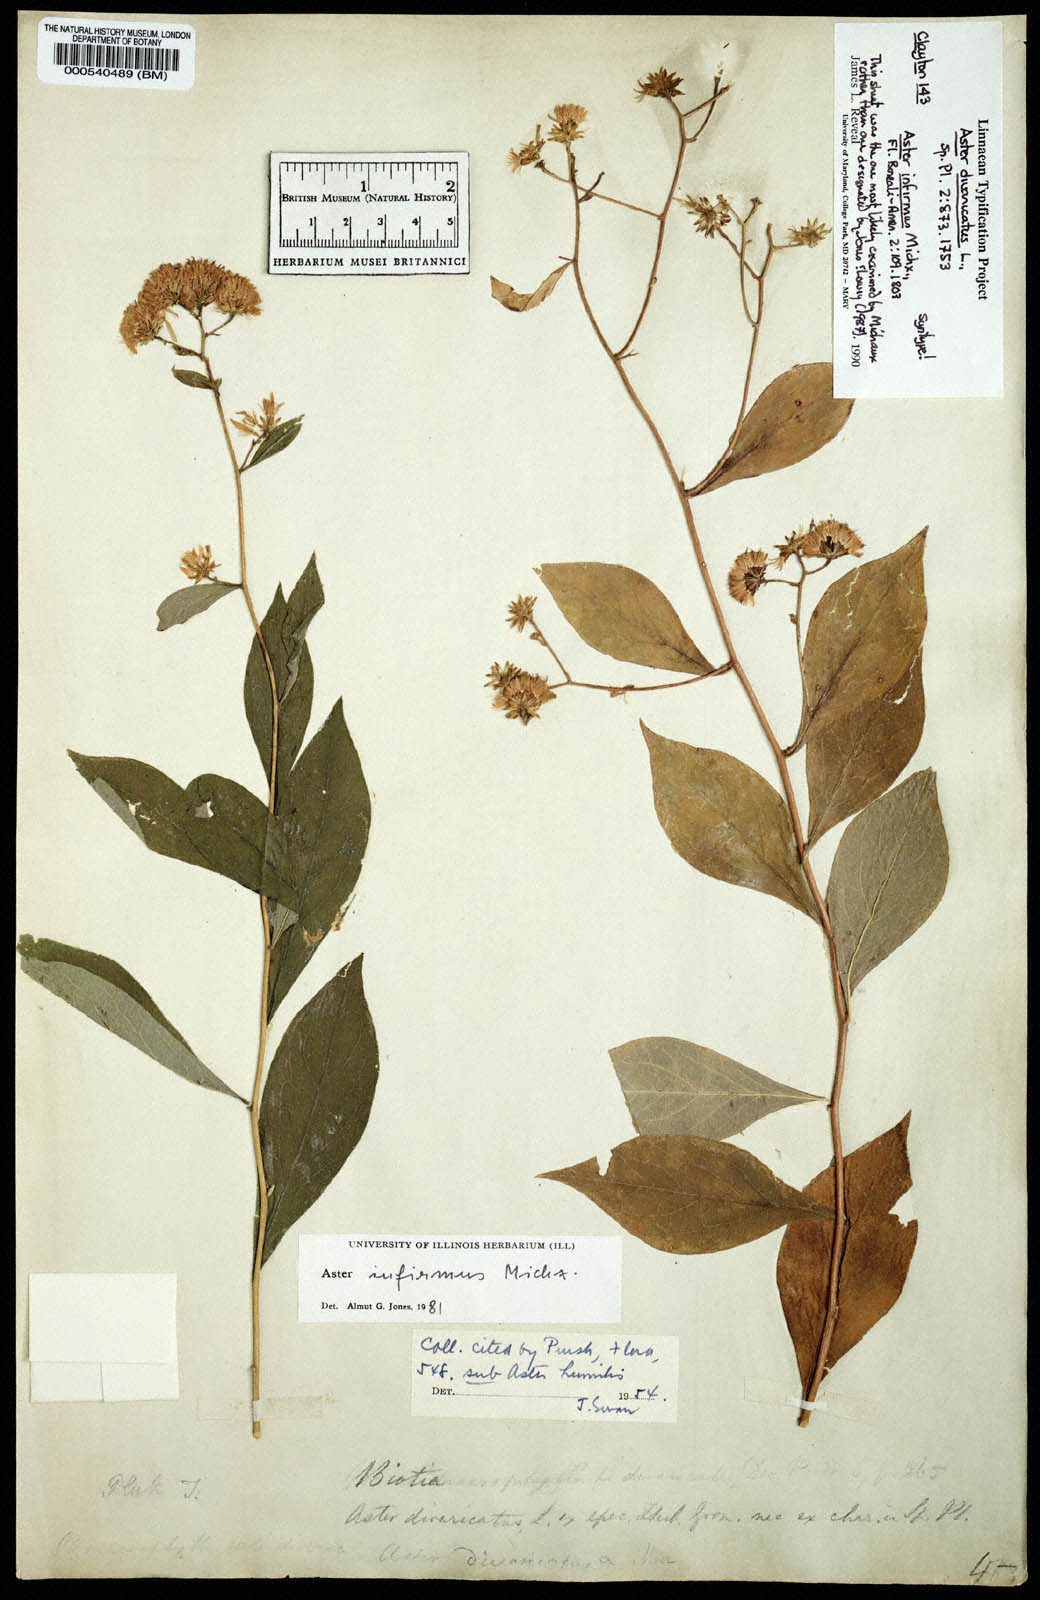 THE NATURAL HISTORY MUSEUM, LONDON
DEPARTMENT OF BOTANY
000540489 (BM)
1 2
BRITISH MUSEUM (NATURAL HISTORY)
1 2 3 4 5
HERBARIUM MUSEI BRITANNICI
Linnaean Typification Project
Aster divaricatus L.,
Sp. Pl. 2:873. 1753
Clayton 143
Aster infirmus Michx.,
Fl. Boreali-Amer. 2:109. 1803
Syntype!
This sheet was the one most likely examined by Michaux
rather than one designated by Jones & Lowry (1987).
James L. Reveal 1990
University of Maryland, College Park, MD 20742 — MARY
UNIVERSITY OF ILLINOIS HERBARIUM (ILL)
Aster infirmus Michx.
Det. Almut G. Jones, 1981
Coll. cited by Pursh, Flora,
548. sub Aster humilis
DET. 1954.
Biotia
Pluk T.
Aster divaricatus, L. ex spec. Herb. Gron. nec ex char. in Sp. Pl.
Aster divaricatus
45